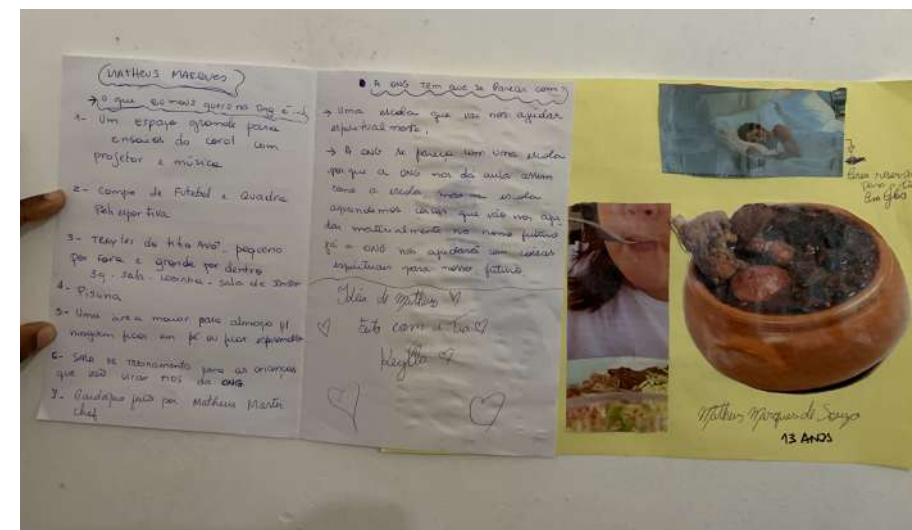 MATHEUS MARQUES
→ O que eu mais quero na ong é
1- Um espaço grande para
ensaios do coral com
projetor e música
2- Campo de Futebol e Quadra
Poliesportiva
3- Templer do tito Avot. pequeno
por fora e grande por dentro
39 - sala - cozinha - sala de
4- Piscina
5- Uma área maior para almoço p/
ninguém ficar em pé ou ficar esperando
6- Sala de treinamento para as crianças
que vão virar tios da ONG
7- Cardápio feito por Matheus Master
chef
• A ONG tem que se parecer com?
→ Uma escola que vai nos ajudar
espiritualmente,
→ A ONG se parece com uma escola
porque a ONG nos da aula assim
como a escola na escola
aprendemos coisas que vão nos aju
dar materialmente no nosso futuro
já a ONG nos ajudará com coisas
espirituais para nosso futuro
Ideia de Matheus
feito com a tia
Keylla
Área reserva
para o tio
Matheus Marques de Souza
13 ANOS